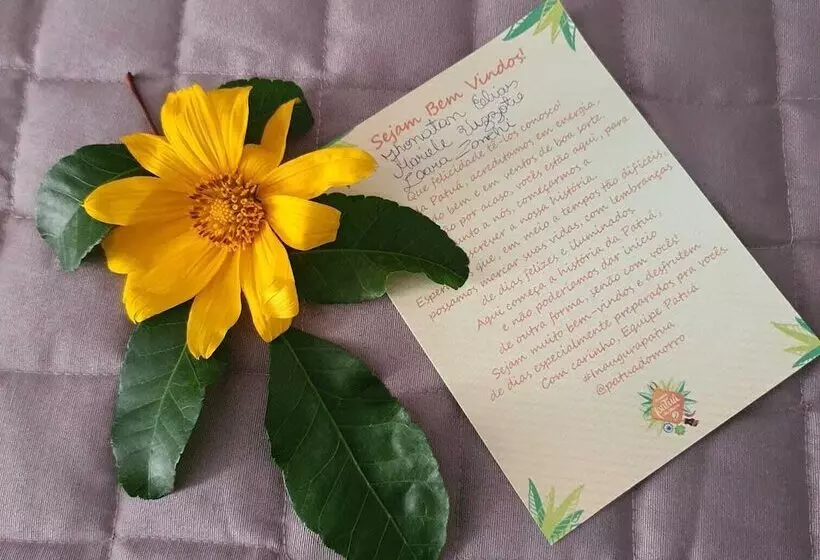 Sejam Bem Vindos!
Jhonatan Elias
Que felicidade tê-los conosco!
Na Patuá, acreditamos em energia,
do bem e em ventos de boa sorte.
por acaso, vocês estão aqui, para
junto a nós, começarmos a
escrever a nossa história.
que, em meio a tempos tão difíceis,
possamos marcar suas vidas, com lembranças
de dias felizes e iluminados.
Aqui começa a história da Patuá,
e não poderíamos dar início
de outra forma, senão com vocês!
Sejam muito bem-vindos e desfrutem
de dias especialmente preparados pra vocês.
Com carinho, Equipe Patuá
#Inaugurapatua
@patuadomorro
patuá